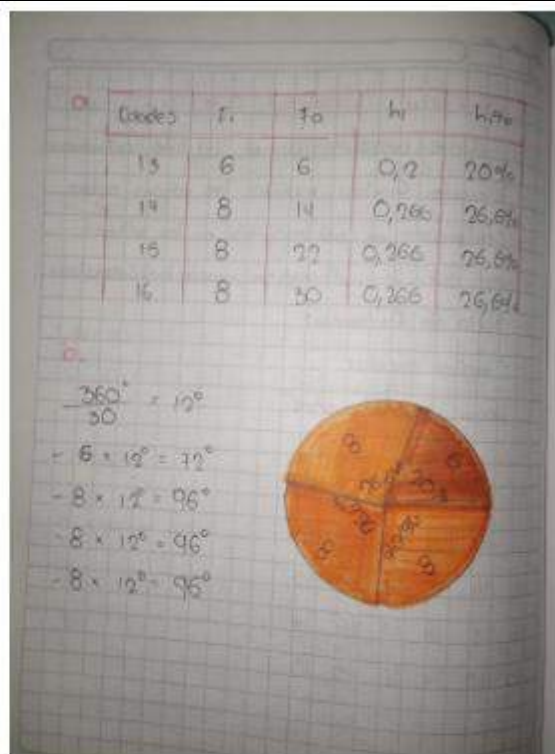 a. Edades fi fa hi hi%
13 6 6 0,2 20%
14 8 14 0,266 26,6%
15 8 22 0,266 26,6%
16 8 30 0,266 26,6%
360° / 30 = 12°
- 6 × 12° = 72°
- 8 × 12° = 96°
- 8 × 12° = 96°
- 8 × 12° = 96°
8 6
20%
8 8